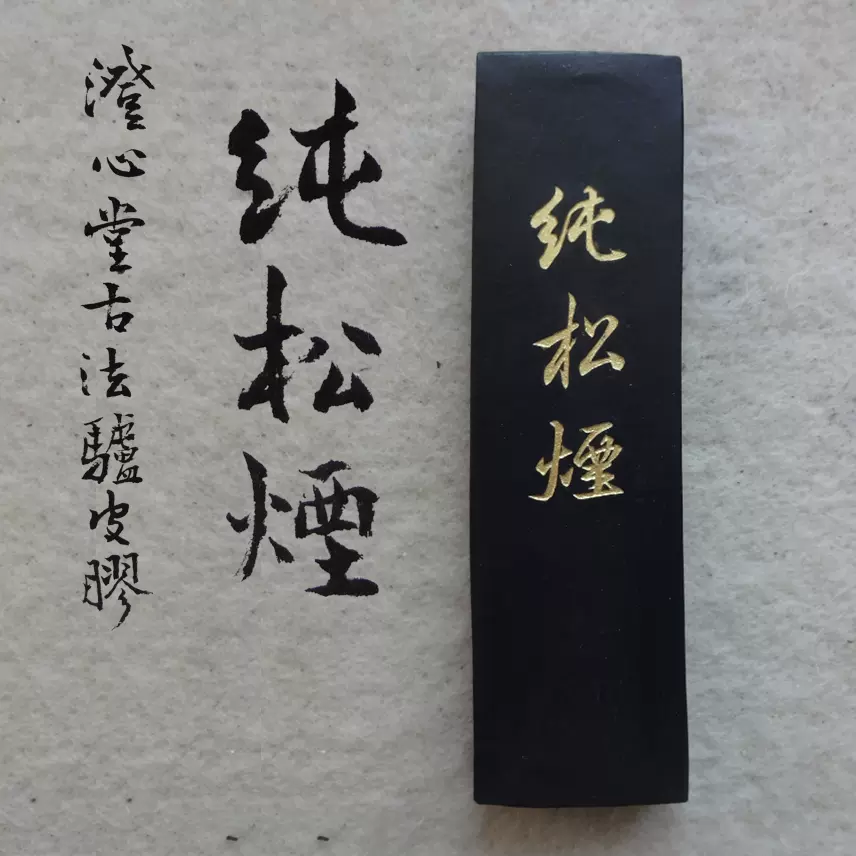 纯松煙
纯松煙
澄心堂古法驢皮膠